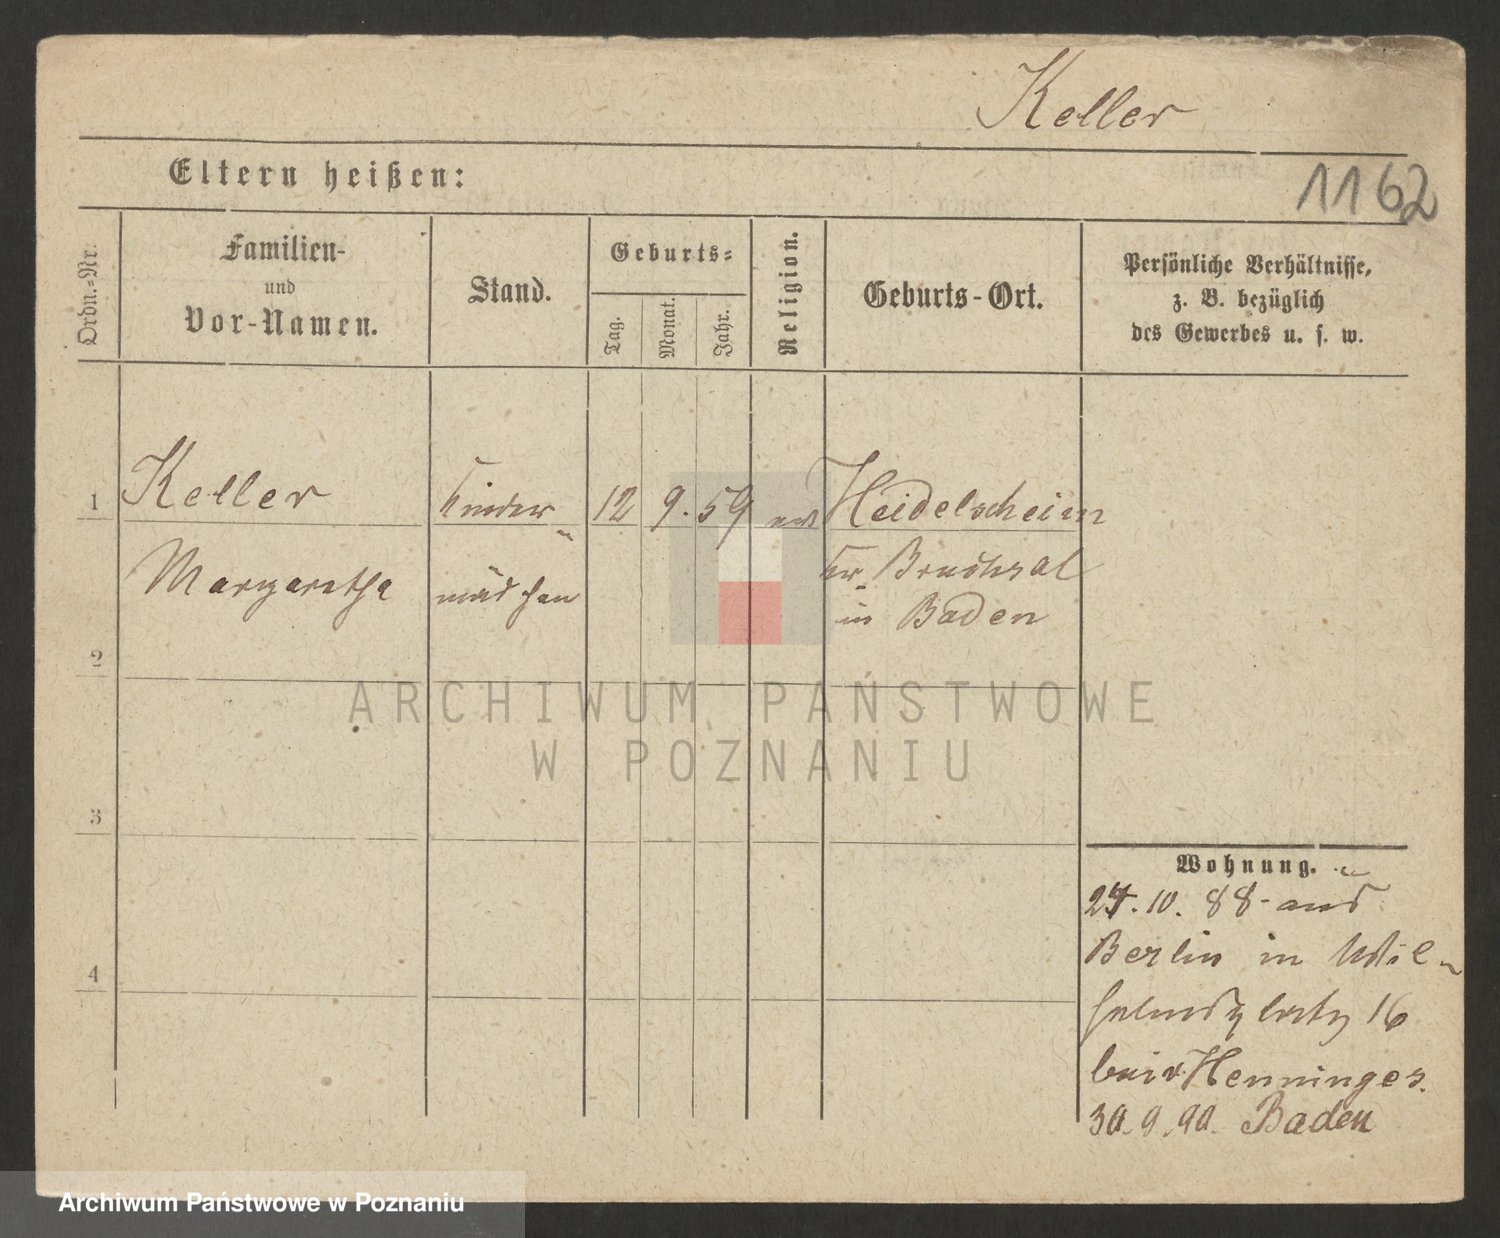 Keller
Eltern heißen:
1162
Ordn.-Nr.
Familien-
und
Vor-Namen.
Stand.
Geburts-
Tag.
Monat.
Jahr.
Religion.
Geburts-Ort.
Persönliche Verhältnisse,
z. B. bezüglich
des Gewerbes u. s. w.
1
Keller
Kinder
12
9.
59
Heidelsheim
Margaretha
mädchen
Kr. Bruchsal
in Baden
2
ARCHIWUM PAŃSTWOWE
W POZNANIU
3
Wohnung.
10. 88 aus
Berlin in Wil-
helmsplatz 16
bei Henninges.
30.9.90. Baden
4
Archiwum Państwowe w Poznaniu